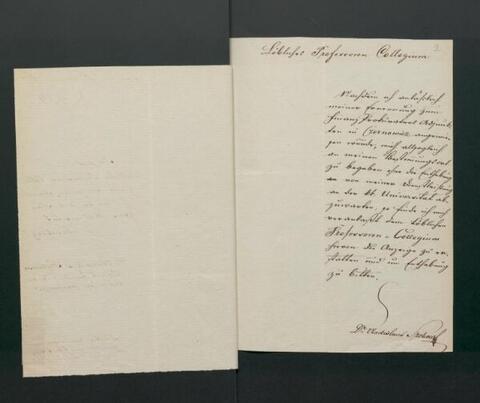 Löbliches Professoren Collegium
Nachdem ich anläßlich
meiner Ernennung zum
Finanz Prokuraturs Adjunk-
ten in Czernowitz angewie-
sen wurde, mich allsogleich
an meinen Bestimmungsort
zu begeben ohne die Enthebung
an von meiner Dienstleistung
an der kk. Universität ab-
zuwarten, so finde ich mich
veranlaßt dem Löblichen
Professoren-Collegium
hievon die Anzeige zu er-
statten und um Enthebung
zu bitten.
Dr.